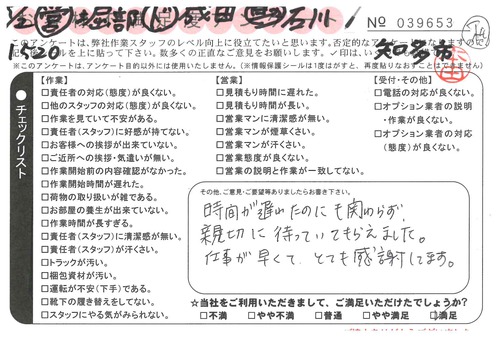 No 039653
1520
知多市
このアンケートは、弊社作業スタッフのレベル向上に役立てたいと思います。否定的な
数多くの正直なご意見をお願いします。✓印は、い
※このアンケートは、アンケート目的以外には使用いたしません。(※情報保護シールは1度はがすと、再度貼りなおすことはできません)
チェックリスト
【作業】
□責任者の対応(態度)が良くない。
□他のスタッフの対応(態度)が良くない。
□作業を見ていて不安がある。
□責任者(スタッフ)に好感が持てない。
□お客様への挨拶が出来ていない。
□ご近所への挨拶・気遣いが無い。
□作業開始前の内容確認がなかった。
□作業開始時間が遅れた。
□荷物の取り扱いが雑である。
□お部屋の養生が出来ていない。
□作業時間が長すぎる。
□責任者(スタッフ)に清潔感が無い。
□責任者(スタッフ)が汗くさい。
□トラックが汚い。
□梱包資材が汚い。
□運転が不安(下手)である。
□靴下の履き替えをしてない。
□スタッフにやる気がみられない。
【営業】
□見積もり時間に遅れた。
□見積もり時間が長い。
□営業マンに清潔感が無い。
□営業マンが煙草くさい。
□営業マンが汗くさい。
□営業態度が良くない。
□営業の説明と作業が一致してない。
【受付・その他】
□電話の対応が良くない。
□オプション業者の説明
・作業が良くない。
□オプション業者の対応
(態度)が良くない。
その他、ご意見・ご要望等ありましたらお書き下さい。
時間が遅れたのにも関わらず、
親切に待っていてもらえました。
仕事が早くて、とても感謝してます。
☆当社をご利用いただきまして、ご満足いただけたでしょうか?
□不満 □やや不満 □普通 □やや満足 □満足